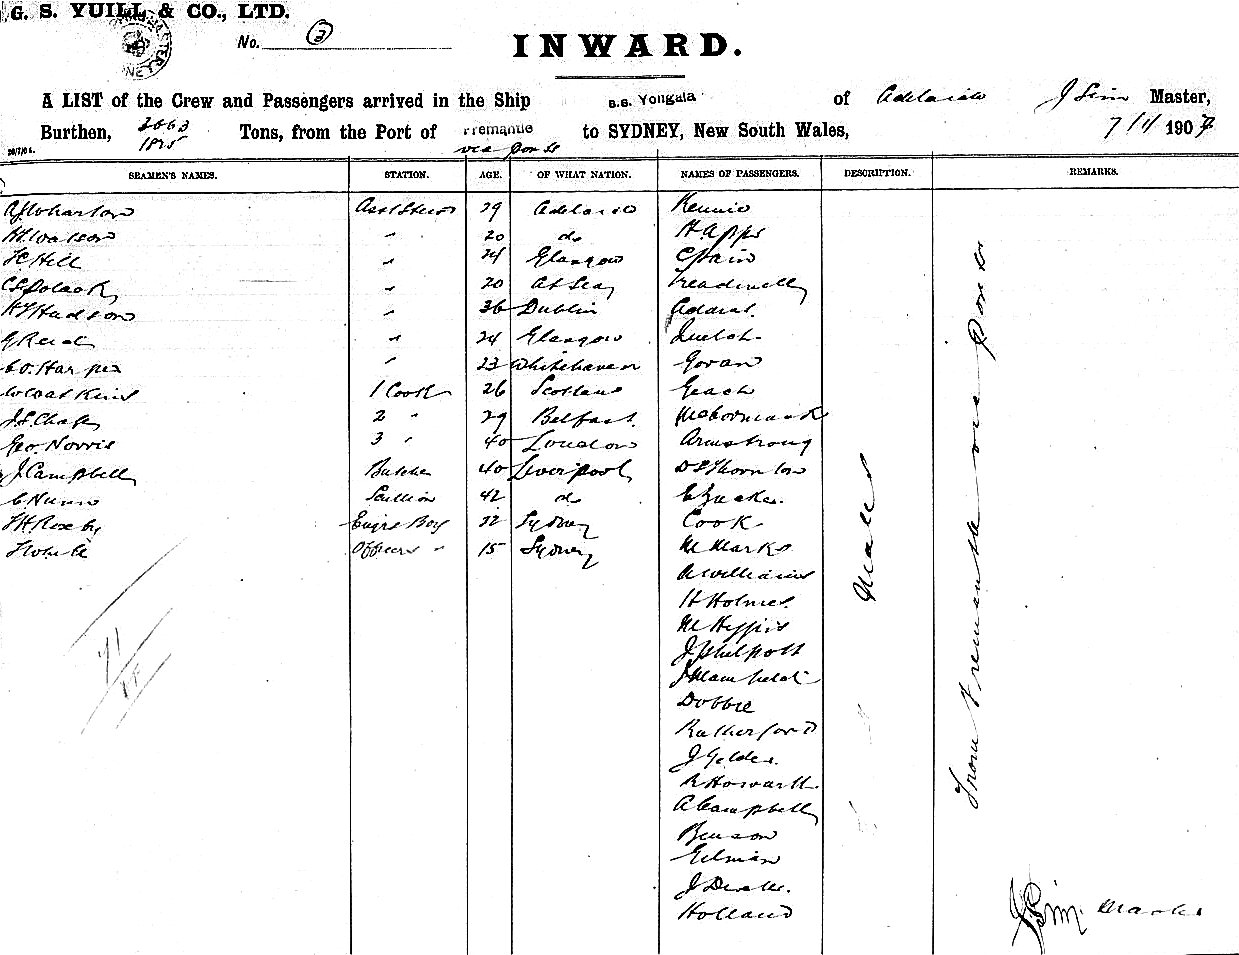 G. S. YUILL & CO., LTD.
No. 3
INWARD.
A LIST of the Crew and Passengers arrived in the Ship s.s. Yongala of Adelaide J Sim Master,
Burthen, 1825 Tons, from the Port of Fremantle to SYDNEY, New South Wales, 7/11 1907
via ports
SEAMEN'S NAMES. STATION. AGE. OF WHAT NATION. NAMES OF PASSENGERS. DESCRIPTION. REMARKS.
A J Wharton Asst Stew 29 Adelaide Rennie
Watson " 20 do H Apps
Hill " 24 Glasgow C Pain
" 20 At Sea Treadwell
Hudson " 36 Dublin Adams
G Reid " 24 Glasgow
Harper " 23 Whitehaven Govan
Watkins 1 Cook 26 Scotland Geach
2 " 29 Belfast McCormack
Geo. Norris 3 " 40 London Armstrong
J Campbell Butcher 40 Liverpool Thornton
C Nunn Scullion 42 do
Roxby Engrs Boy 22 Sydney Cook
White Officers " 15 Sydney M Marks
A Williams
H Holmes
J Philpott
Dobbie
Rutherford
R Howarth
A Campbell
Benson
Gilman
Holland
Males
From Fremantle via ports
J Sim Master